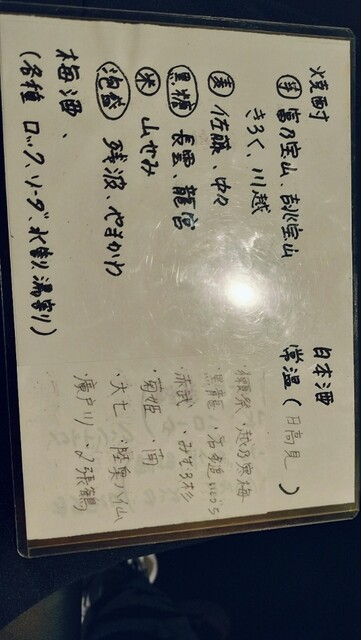 焼酎
芋 富乃宝山、吉兆宝山
きろく、川越
麦 佐藤 中々
黒糖 長雲、龍宮
米 山せみ
泡盛 残波、やまかわ
梅酒、
(各種 ロック、ソーダ、水割り、湯割り)
日本酒
常温 (日高見)
獺祭・越乃寒梅
・黒龍・
・赤武・みむろ杉
・菊姫・南
・大七・陸奥八仙
・廣戸川・〆張鶴